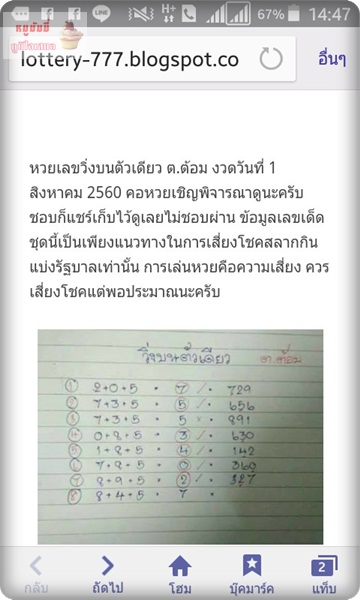 67% 14:47
หมูอันนี่
lottery-777.blogspot.co
อื่นๆ
หวยเลขวิ่งบนตัวเดียว ต.ต้อม งวดวันที่ 1
สิงหาคม 2560 คอหวยเชิญพิจารณาดูนะครับ
ชอบก็แชร์เก็บไว้ดูเลยไม่ชอบผ่าน ข้อมูลเลขเด็ด
ชุดนี้เป็นเพียงแนวทางในการเสี่ยงโชคสลากกิน
แบ่งรัฐบาลเท่านั้น การเล่นหวยคือความเสี่ยง ควร
เสี่ยงโชคแต่พอประมาณนะครับ
วิ่งบนตัวเดียว ต.ต้อม
1 2+0+5 = 7 / = 729
2 7+3+5 = 5 / = 656
3 7+3+5 = 5 x = 891
4 0+8+5 = 3 / = 630
5 1+8+5 = 4 / = 142
6 7+8+5 = 0 / = 360
7 8+9+5 = 2 / = 327
8 8+4+5 = 7 =
กลับ ถัดไป โฮม บุ๊คมาร์ค แท็บ
2